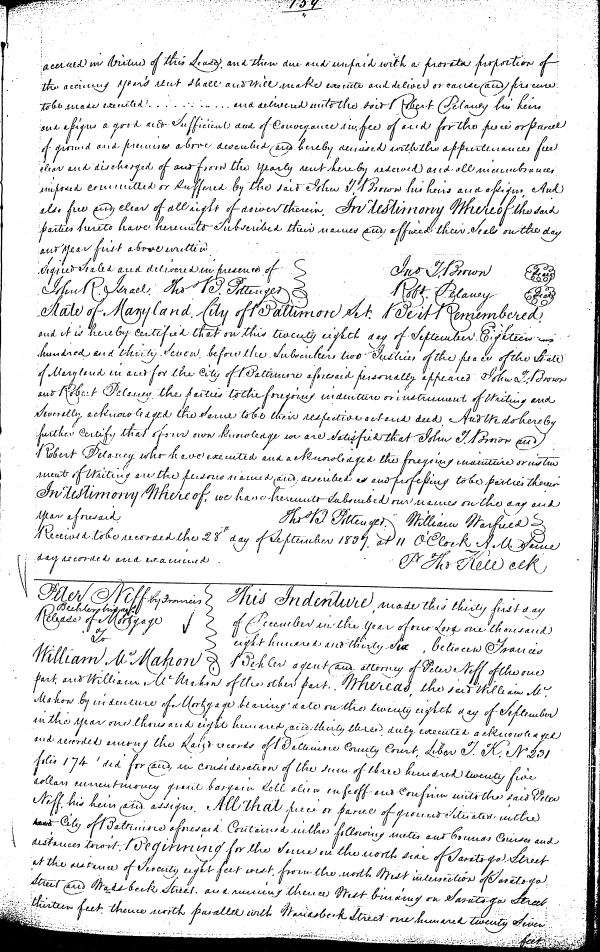 159
accrued in Virtue of this Lease, and then due and unpaid with a prorata proportion of
the accruing years rent shall and will make execute and deliver or cause and procure
to be made executed . . . . . . . . . and delivered unto the said Robert Delaney his heirs
and assigns a good and Sufficient deed of Conveyance in fee of and for the piece or parcel
of ground and premises above described and hereby demised with the appurtenances free
clear and discharged of and from the yearly rent hereby reserved and all incumbrances
imposed committed or suffered by the said John T. Brown his heirs and assigns, And
also free and clear of all right of dower therein. In testimony Whereof, the said
parties hereto have hereunto Subscribed their names and affixed their Seals on the day
and year first above written
Signed Sealed and delivered in presence of Jno T. Brown Seal
John R. Israel. Thos B. Pottenger Robt. Delaney Seal
State of Maryland, City of Baltimore Sct. Be it Remembered
and it is hereby certified that on this twenty eighth day of September Eighteen
hundred and thirty Seven before the Subscribers two Justices of the peace of the State
of Maryland in and for the City of Baltimore aforesaid personally appeared John T. Brown
and Robert Delaney the parties to the foregoing indenture or instrument of Writing and
Severally acknowledged the Same to be their respective act and deed. And We do hereby
further Certify that of our own knowledge we are Satisfied that John T. Brown and
Robert Delaney who have executed and acknowledged the foregoing indenture or instru
ment of Writing are the persons named and described as and professing to be parties therein
In testimony Whereof, we have hereunto Subscribed our names on the day and
year aforesaid Thos B. Pottenger William Warfield
Received to be recorded the 28th day of September 1837, at 11 OClock A.M. Same
day recorded and examined Pr Thos Kell clk
Peter Neff by Francis
Release of Mortgage
To
William McMahon
This Indenture, made this thirty first day
of December in the Year of our Lord one thousand
eight hundred and thirty Six, between Francis
Behler agent and attorney of Peter Neff of the one
part, and William McMahon of the other part. Whereas, the said William Mc
Mahon by indenture of Mortgage bearing date on the twenty eighth day of September
in the year one thousand eight hundred and thirty three, duly executed acknowledged
and recorded among the Land records of Baltimore County Court, Liber T. K. No 231
folio 174 &c did for and in consideration of the sum of three hundred twenty five
dollars current money grant bargain Sell alien enfeoff and Confirm unto the said Peter
Neff, his heirs and assigns. All that piece or parcel of ground Situated in the
City of Baltimore aforesaid Contained in the following metes and bounds Course and
distances towit. Beginning for the Same on the north side of Saratoga Street
at the distance of Seventy eight feet west, from the north West intersection of Saratoga
Street and Wansbeck Street. and running thence West binding on Saratoga Street
thirteen feet, thence north parallel with Wansbeck Street one hundred twenty Seven
feet